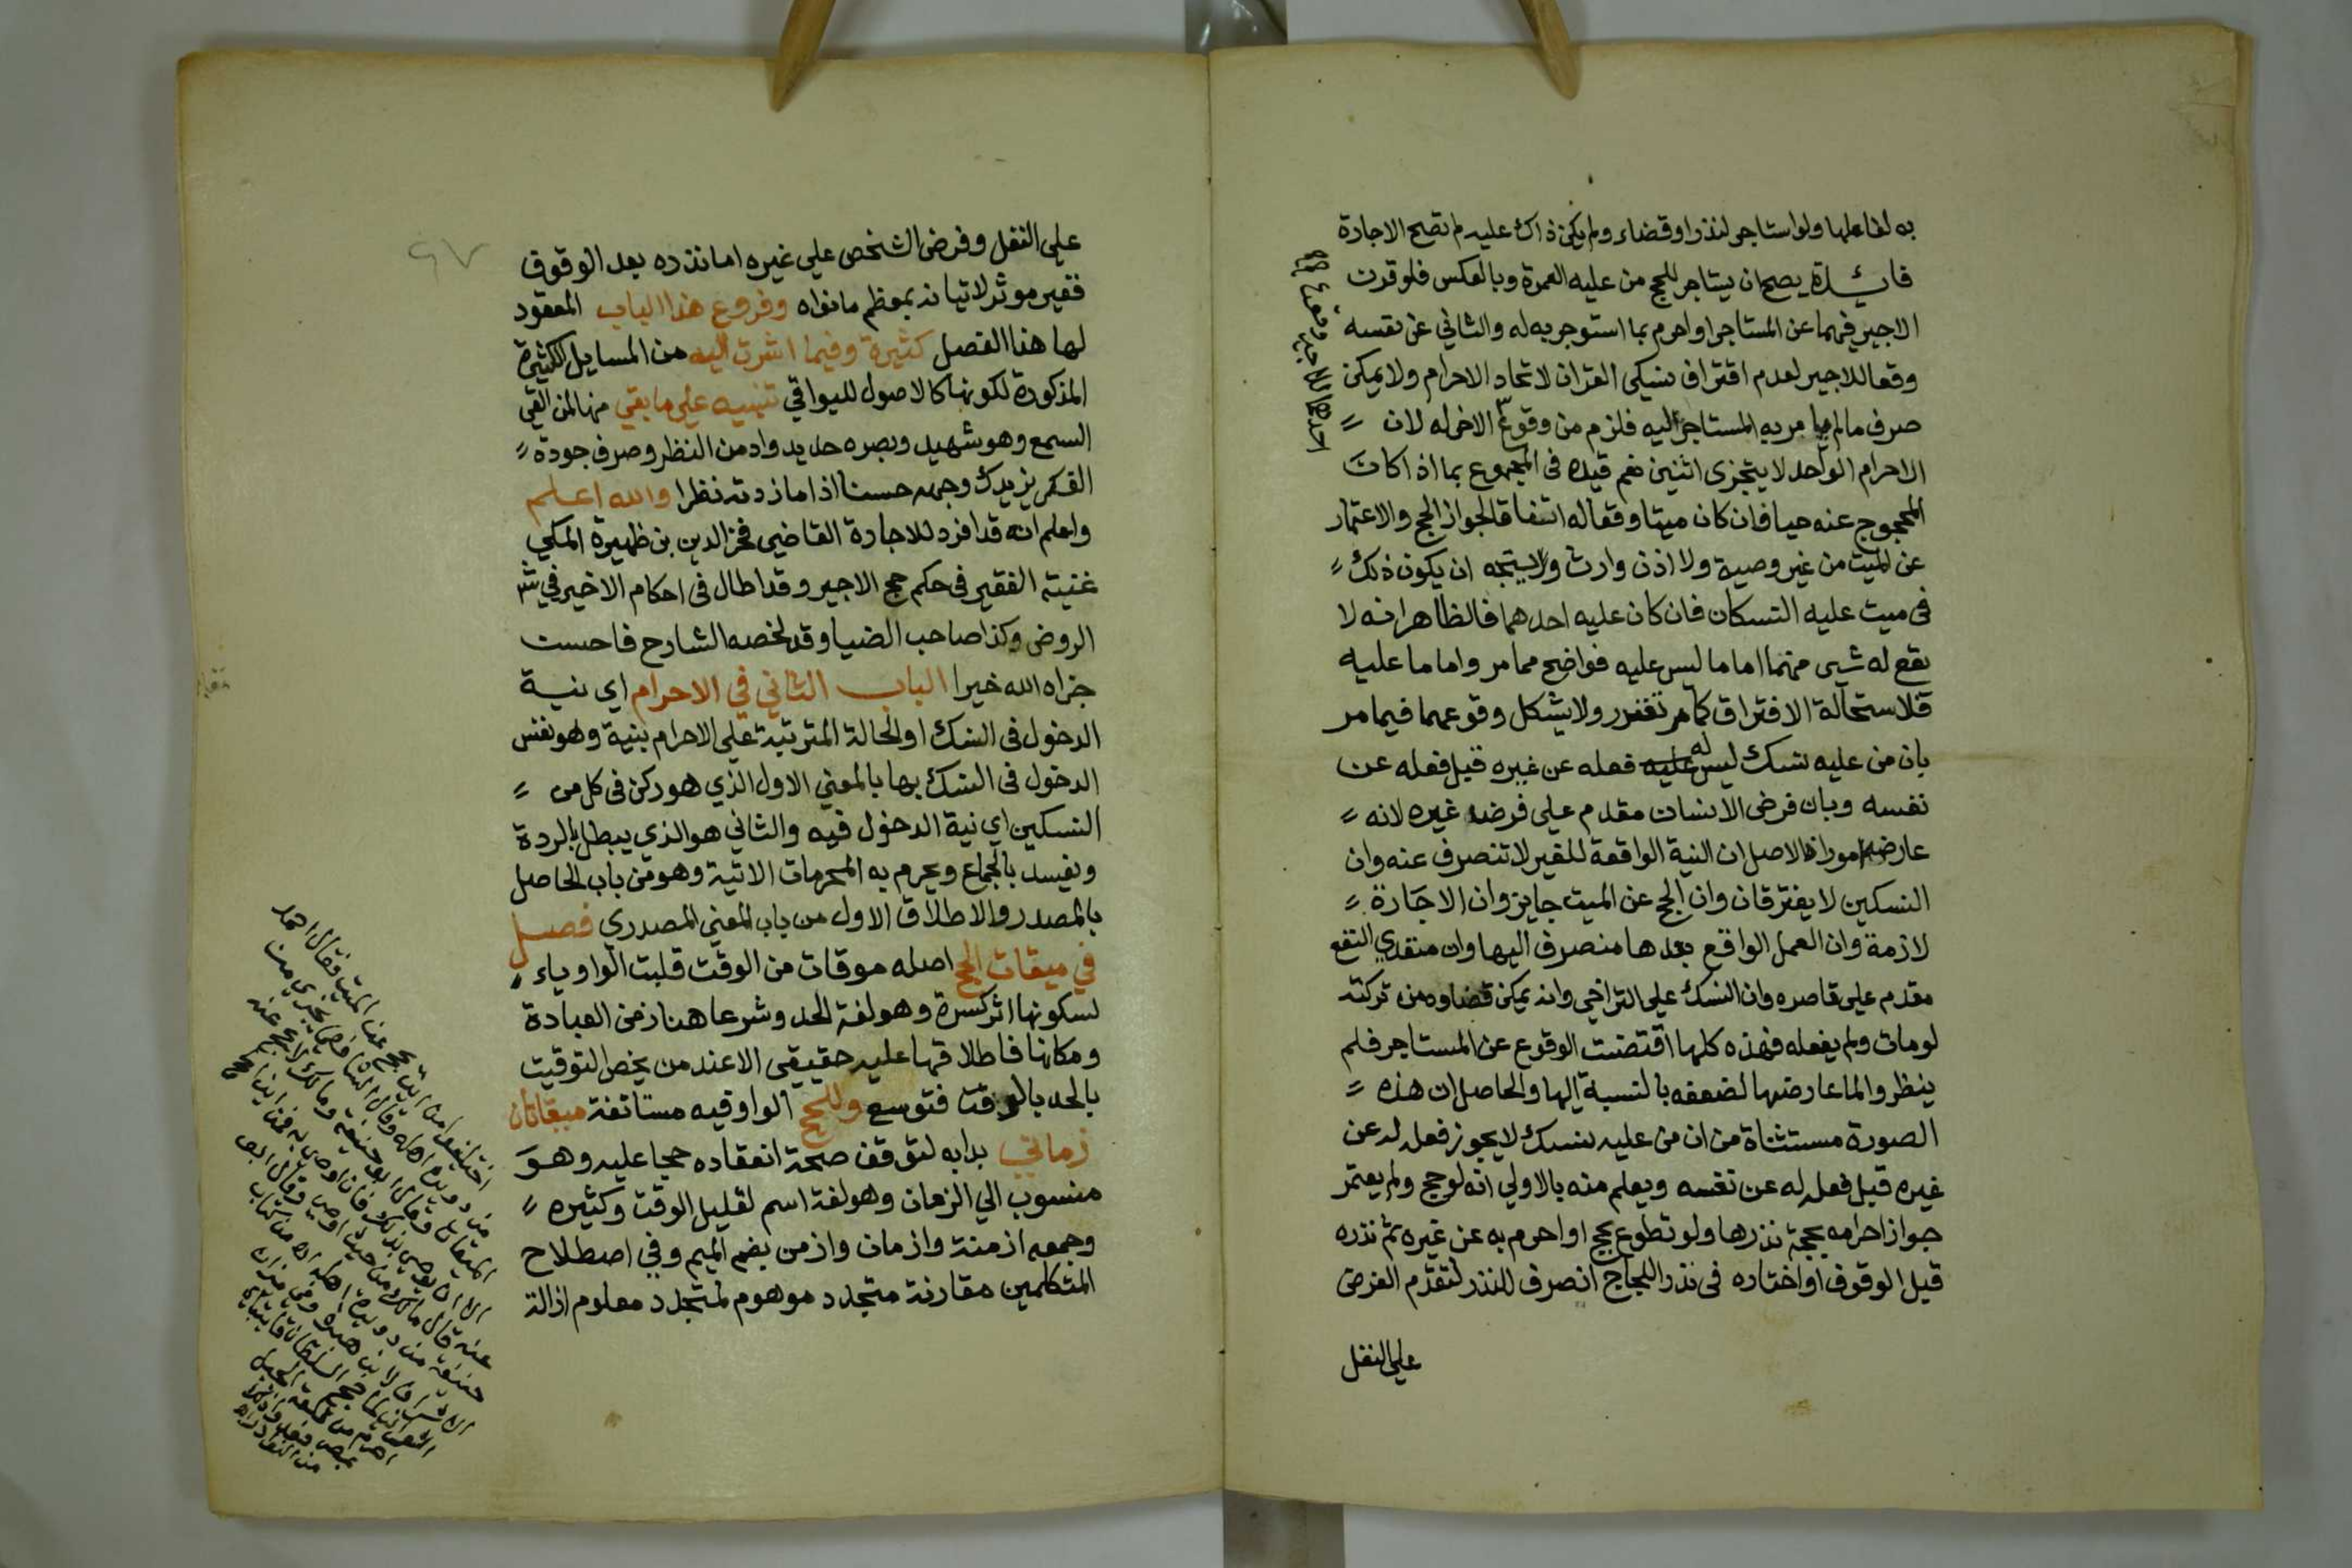 به لفاعلها ولو استاجر لنذر او قضاء ولم يكن ذاك عليه لم تصح الاجارة
فايدة يصح ان يستاجر للحج من عليه العمرة وبالعكس فلو قرن
الاجير فيهما عن المستاجر او احرم بما استوجر به له والثاني عن نفسه
وقعا للاجير لعدم افتراق نسكي القران لاتحاد الاحرام ولا يمكن
صرف ما لم يامر به المستاجر اليه فلزم من وقوع الاخر له لان
الاحرام الواحد لا يتجزى اثنين نعم قيده في المجموع بما اذا كان
المحجوج عنه حيا فان كان ميتا وقعا له اتفاقا لجواز الحج والاعتمار
عن الميت من غير وصية ولا اذن وارث ولا يتجه ان يكون ذلك
في ميت عليه النسكان فان كان عليه احدهما فالظاهر انه لا
يقع له شيي منهما اما ما ليس عليه فواضح مما مر واما ما عليه
فلاستحالة الافتراق كما مر تقرر ولا يشكل وقوعهما فيما مر
بان من عليه نسك ليس له عليه فعله عن غيره قبل فعله عن
نفسه وبان فرض الانسان مقدم على فرض غيره لانه
عارضه امور اذ الاصل ان النية الواقعة للغير لا تنصرف عنه وان
النسكين لا يفترقان وان الحج عن الميت جايز وان الاجارة
لازمة وان العمل الواقع بعدها منصرف اليها وان متعدي النفع
مقدم على قاصره وان النسك على التراخي وانه يمكن قضاوه من تركته
لو مات ولم يفعله فهذه كلها اقتضت الوقوع عن المستاجر فلم
ينظروا لما عارضها لضعفه بالنسبة اليها والحاصل ان هذه
الصورة مستثناة من ان من عليه نسك لا يجوز فعله له عن
غيره قبل فعله له عن نفسه ويعلم منه بالاولي انه لو حج ولم يعتمر
جواز احرامه بحجة نذرها ولو تطوع بحج او احرم به عن غيره ثم نذره
قبل الوقوف او اختاره في نذر اللجاج انصرف للنذر لتقدم الفرض
على النفل
على النفل وفرض الشخص على غيره اما نذره بعد الوقوف
فغير موثر لاتيانه بمعظم ما نواه وفروع هذا الباب المعقود
لها هذا الفصل كثيرة وفيما اشرت اليه من المسايل الكثيرة
المذكورة لكونها كالاصول للبواقي تنبيه على ما بقي منها لمن القى
السمع وهو شهيد وبصره حديد وادمن النظر وصرف جودة
الفكر يزيدك وجهه حسنا اذا ما زدته نظرا والله اعلم
واعلم انه قد افرد للاجارة القاضي فخر الدين بن ظهيرة المكي
غنية الفقير في حكم حج الاجير وقد اطال في احكام الاخير في شر
الروض وكذا صاحب الضيا وقد لخصه الشارح فاحسن
جزاه الله خيرا الباب الثاني في الاحرام اي نية
الدخول في النسك او الحالة المترتبة على الاحرام بنية وهو نفس
الدخول في النسك بها بالمعني الاول الذي هو ركن في كل من
النسكين اي نية الدخول فيه والثاني هو الذي يبطل بالردة
ويفسد بالجماع ويحرم به المحرمات الاتية وهو من باب الحاصل
بالمصدر والاطلاق الاول من باب المعني المصدري فصل
في ميقات الحج اصله موقات من الوقت قلبت الواو ياء
لسكونها اثر كسرة وهو لغة الحد وشرعا هنا زمن العبادة
ومكانها فاطلاقها عليه حقيقي الا عند من يخص التوقيت
بالحد بالوقت فتوسع وللحج الواو فيه مستانفة ميقاتان
زماني بدا به لتوقف صحة انعقاده حجا عليه وهو
منسوب الي الزمان وهو لغة اسم لقليل الوقت وكثيره
وجمعه ازمنة وازمان وازمن بضم الميم وفي اصطلاح
المتكلمين مقارنة متجدد موهوم لمتجدد معلوم ازالة